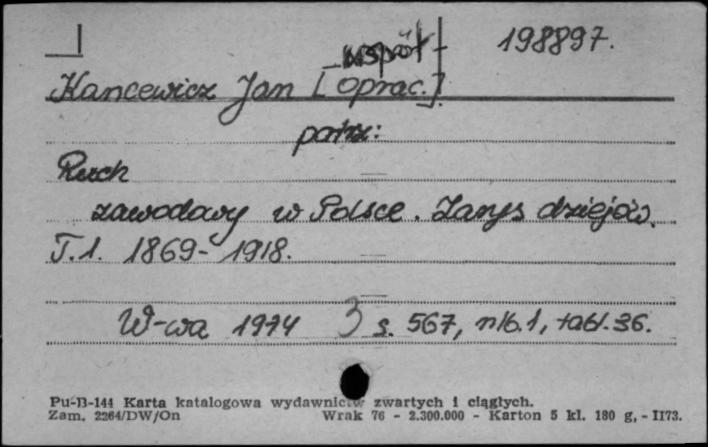 współ 198897.
Kancewicz Jan [oprac.]
patrz:
Ruch
zawodowy w Polsce. Zarys dziejów.
T.1. 1869-1918.
W-wa 1974 3 s. 567, nlb.1, tabl. 36.
Pu-B-144 Karta katalogowa wydawnictw zwartych i ciągłych.
Zam. 2264/DW/On Wrak 76 - 2.300.000 - Karton 5 kl. 180 g, - II73.